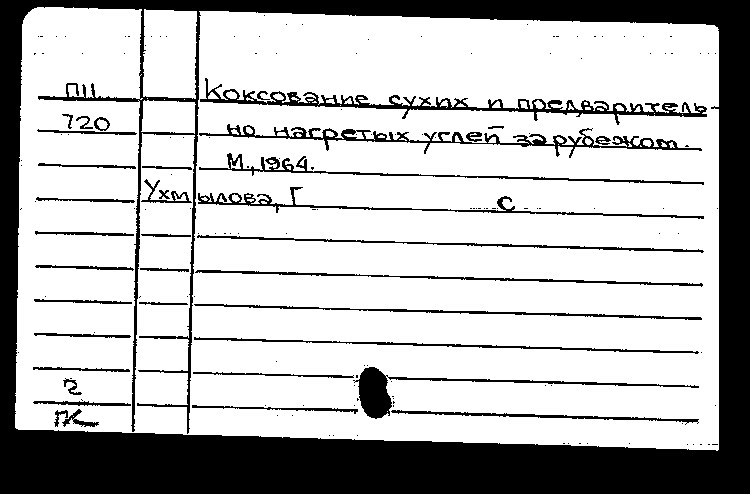 П11 Коксование сухих и предваритель-
720 но нагретых углей за рубежом.
М., 1964.
Ухмылова, Г с
2
ПК